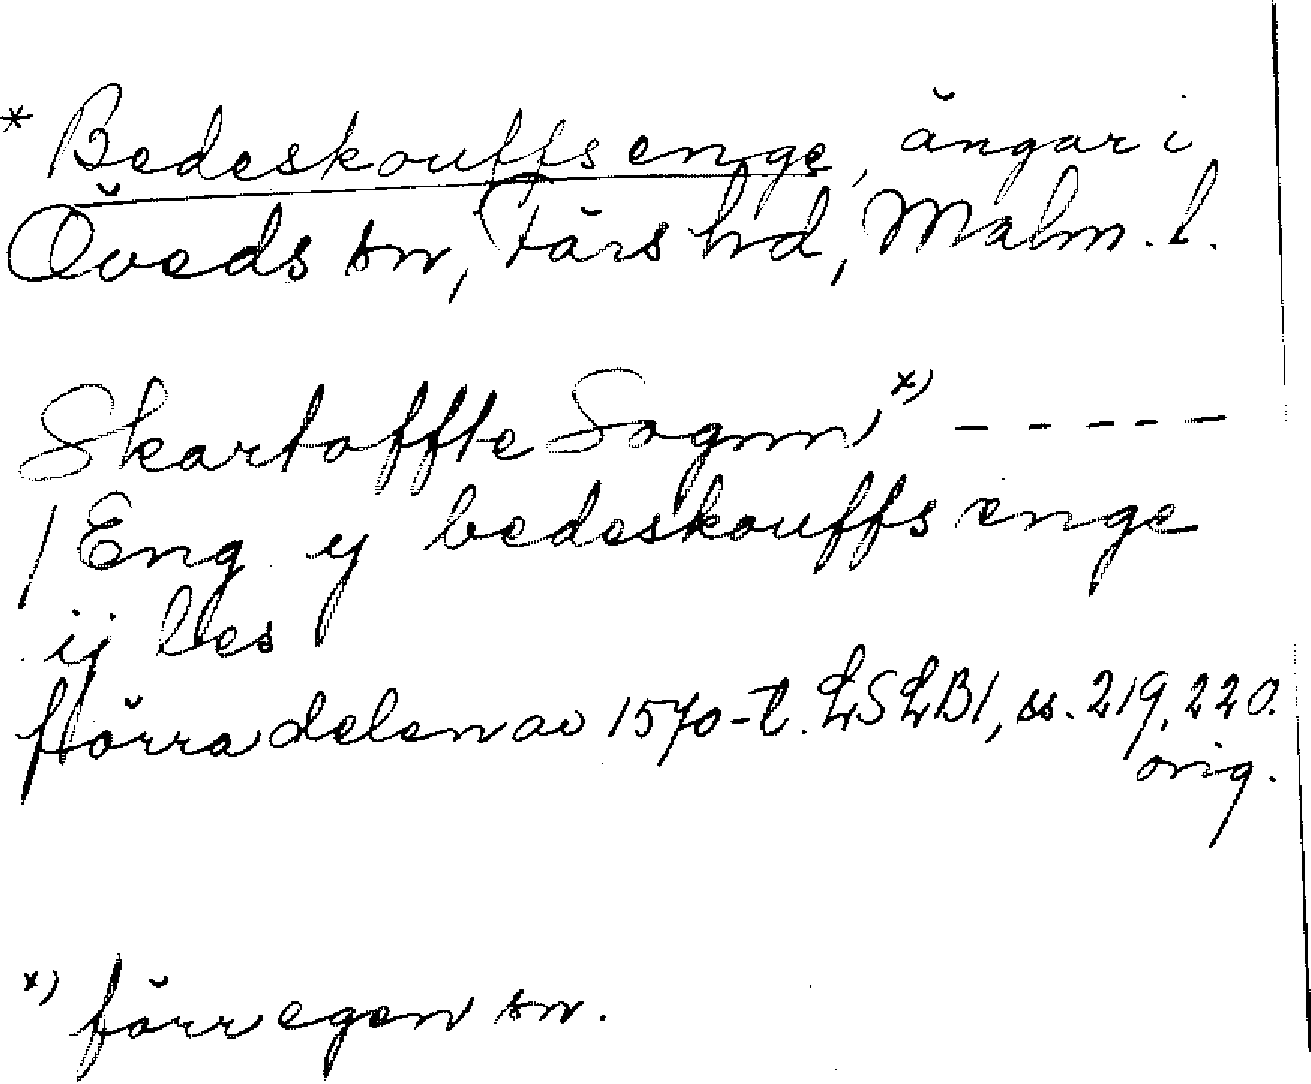 * Bedeskouffs enge, ängar i
Öveds sn, Färs hd, Malm. l.
Skartoffte Sognn x) - - - - -
1 Eng y bedeskouffs enge
ij les
förra delen av 1570-t. LSLB1, ss. 219, 220.
orig.
x) förr egen sn.